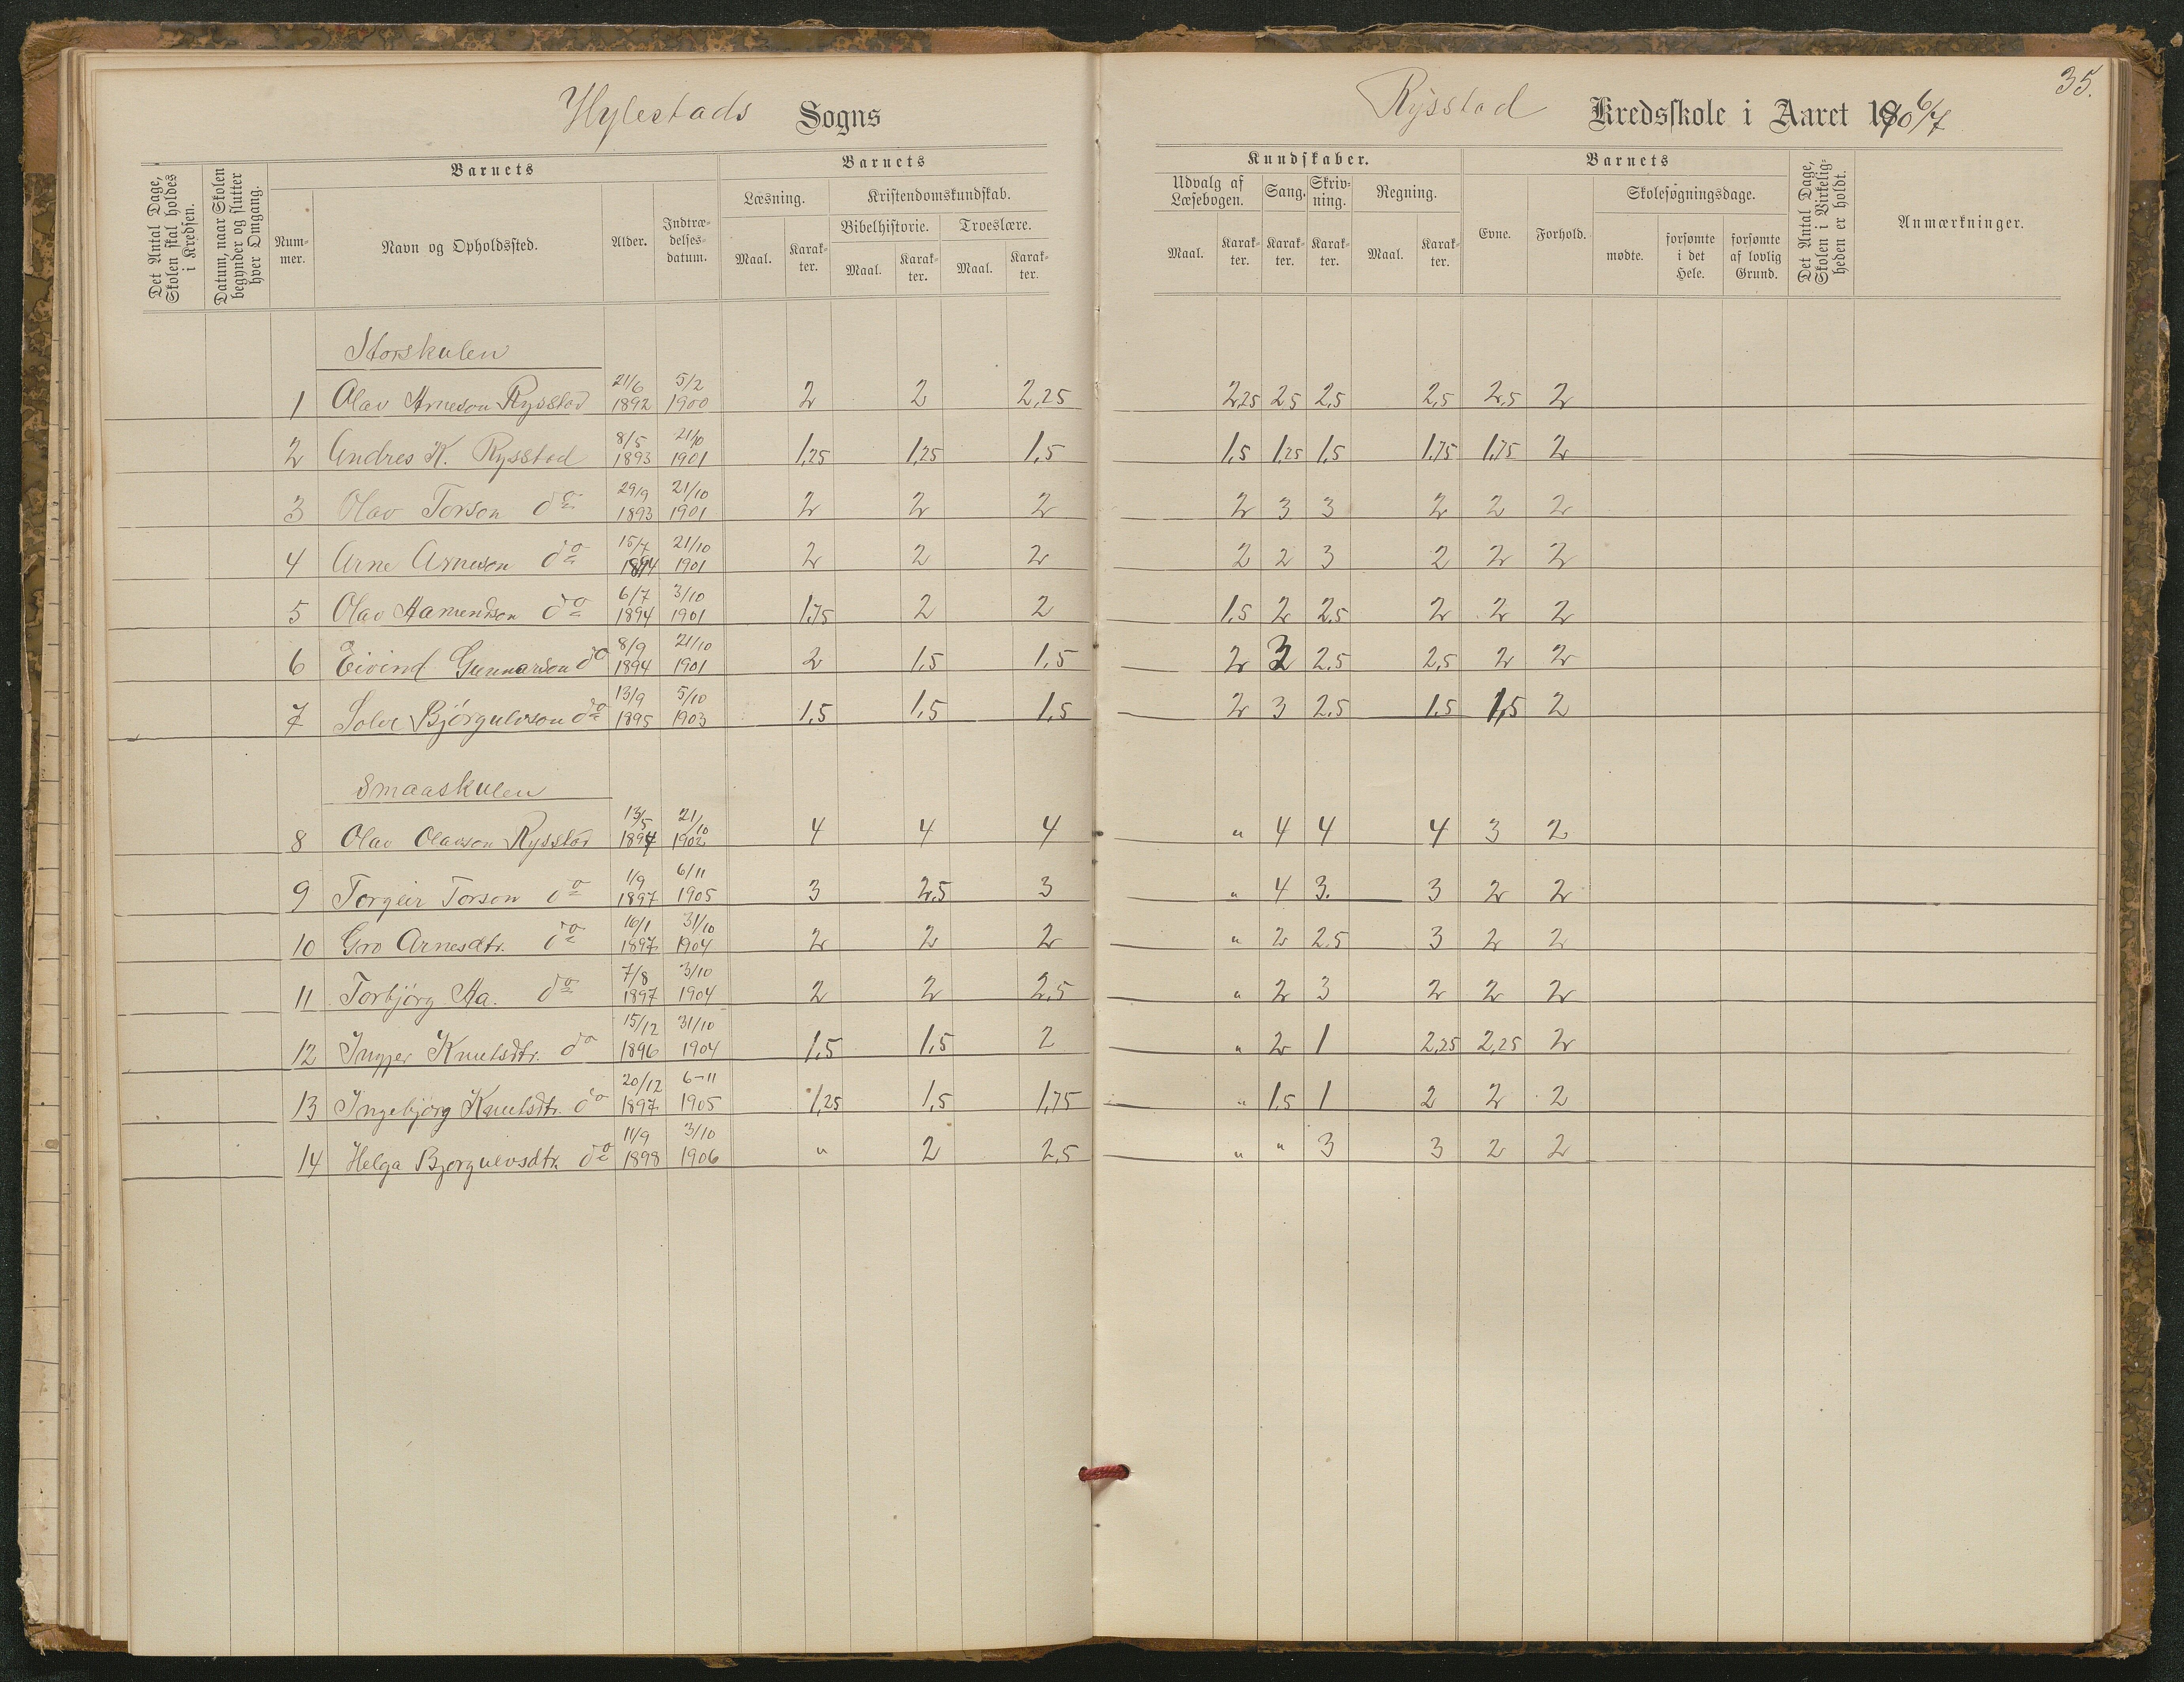 35.
Hylestads Sogns
Rysstad Kredsskole i Aaret 1906/7
Det Antal Dage, Skolen skal holdes i Kredsen.
Datum, naar Skolen begynder og slutter hver Omgang.
Barnets
Num-mer.
Navn og Opholdssted.
Alder.
Indtræ-delses-datum.
Barnets
Læsning.
Kristendomskundskab.
Bibelhistorie.
Troeslære.
Maal.
Karak-ter.
Maal.
Karak-ter.
Maal.
Karak-ter.
Kundskaber.
Udvalg af Læsebogen.
Sang.
Skriv-ning.
Regning.
Maal.
Karak-ter.
Karak-ter.
Karak-ter.
Maal.
Karak-ter.
Barnets
Evne.
Forhold.
Skolesøgningsdage.
mødte.
forsømte i det Hele.
forsømte af lovlig Grund.
Det Antal Dage, Skolen i Virkelig-heden er holdt.
Anmærkninger.
Storskulen
1 Olav Arneson Rysstad 21/6 1892 5/2 1900 2 2 2,25 2,25 2,5 2,5 2,5 2,5 2
2 Andres K. Rysstad 8/5 1893 21/10 1901 1,25 1,25 1,5 1,5 1,25 1,5 1,75 1,75 2
3 Olav Torson do 29/9 1893 21/10 1901 2 2 2 2 3 3 2 2 2
4 Arne Arneson do 15/7 1894 21/10 1901 2 2 2 2 2 3 2 2 2
5 Olav Aamundson do 6/7 1894 3/10 1901 1,75 2 2 1,5 2 2,5 2 2 2
6 Eivind Gunnarson do 8/9 1894 21/10 1901 2 1,5 1,5 2 3 2,5 2,5 2 2
7 Solve Bjørgulvson do 13/9 1895 5/10 1903 1,5 1,5 1,5 2 3 2,5 1,5 1,5 2
Smaaskulen
8 Olav Olavson Rysstad 13/5 1894 21/10 1902 4 4 4 " 4 4 4 3 2
9 Torgeir Torson do 1/9 1897 6/11 1905 3 2,5 3 " 4 3. 3 2 2
10 Gro Arnesdtr. do 16/1 1897 31/10 1904 2 2 2 " 2 2,5 3 2 2
11 Torbjørg Aa. do 7/8 1897 3/10 1904 2 2 2,5 " 2 3 2 2 2
12 Ingjer Knutsdtr. do 15/12 1896 31/10 1904 1,5 1,5 2 " 2 1 2,25 2,25 2
13 Ingebjørg Knutsdtr. do 20/12 1897 6-11 1905 1,25 1,5 1,75 " 1,5 1 2 2 2
14 Helga Bjørgulvsdtr. do 11/9 1898 3/10 1906 " 2 2,5 " " 3 3 2 2